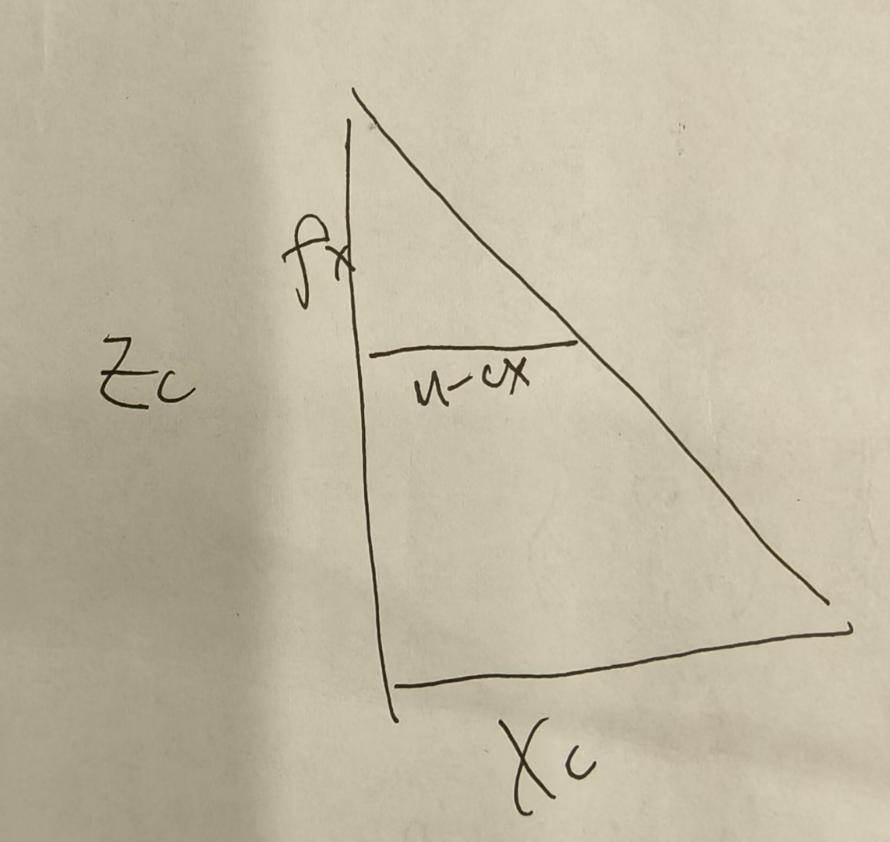 fx
Zc
u-cx
Xc